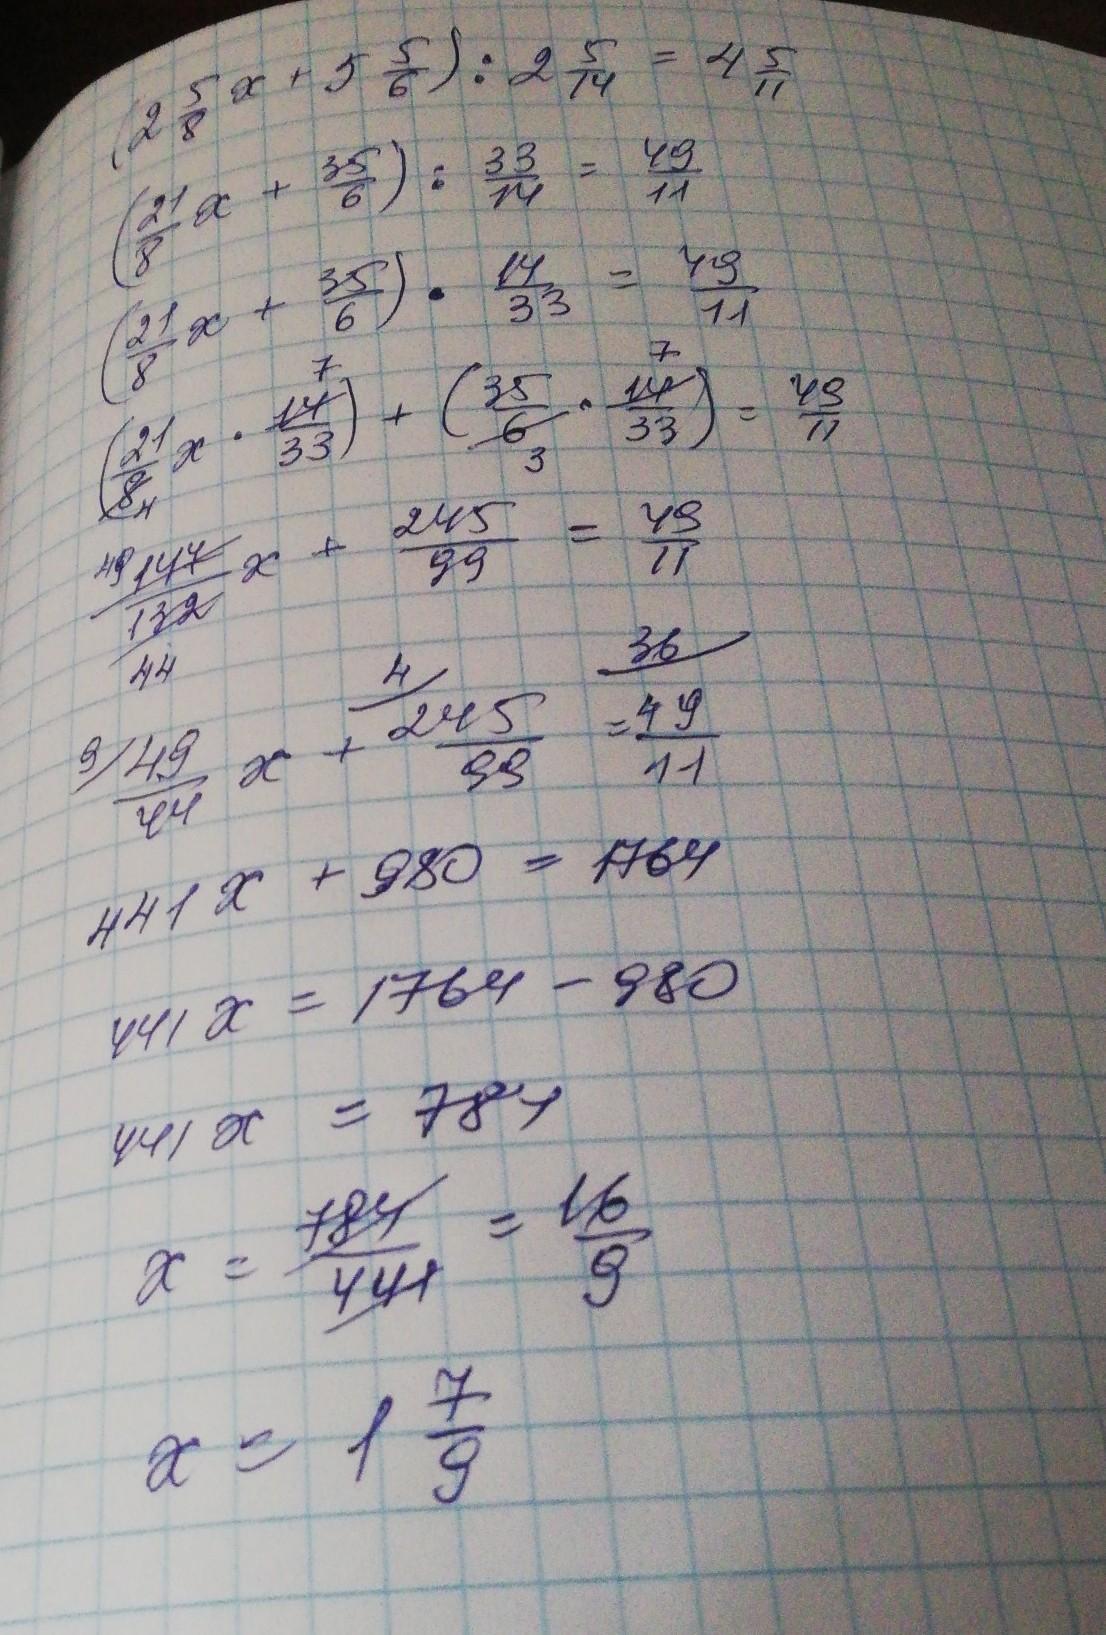 (2 5/8 x + 5 5/6) : 2 5/14 = 4 5/11
(21/8 x + 35/6) : 33/14 = 49/11
(21/8 x + 35/6) · 14/33 = 49/11
7 7
(21/8 x · 14/33) + (35/6 · 14/33) = 49/11
4 3
49 147/132 x + 245/99 = 49/11
44
4 36
9/ 49/44 x + 245/99 = 49/11
441x + 980 = 1764
441x = 1764 - 980
441x = 784
x = 784/441 = 16/9
x = 1 7/9